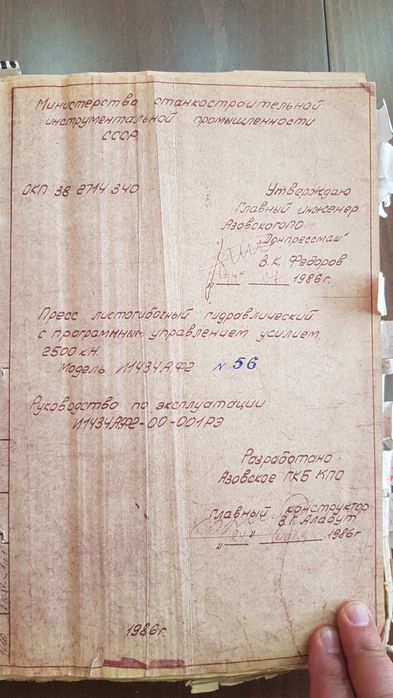 Министерство станкостроительной
инструментальной промышленности
СССР
ОКП 38 2714 340
Утверждаю
Главный инженер
Азовского ПО
"Донпрессмаш"
В.К. Федоров
1986г.
Пресс листогибочный гидравлический
с программным управлением усилием
2500 кН.
Модель И1434АФ2 N 56
Руководство по эксплуатации
И1434АФ2-00-001РЭ
Разработано
Азовское ГКБ КПО
Главный конструктор
В.Г. Алабут
1986г
1986г.